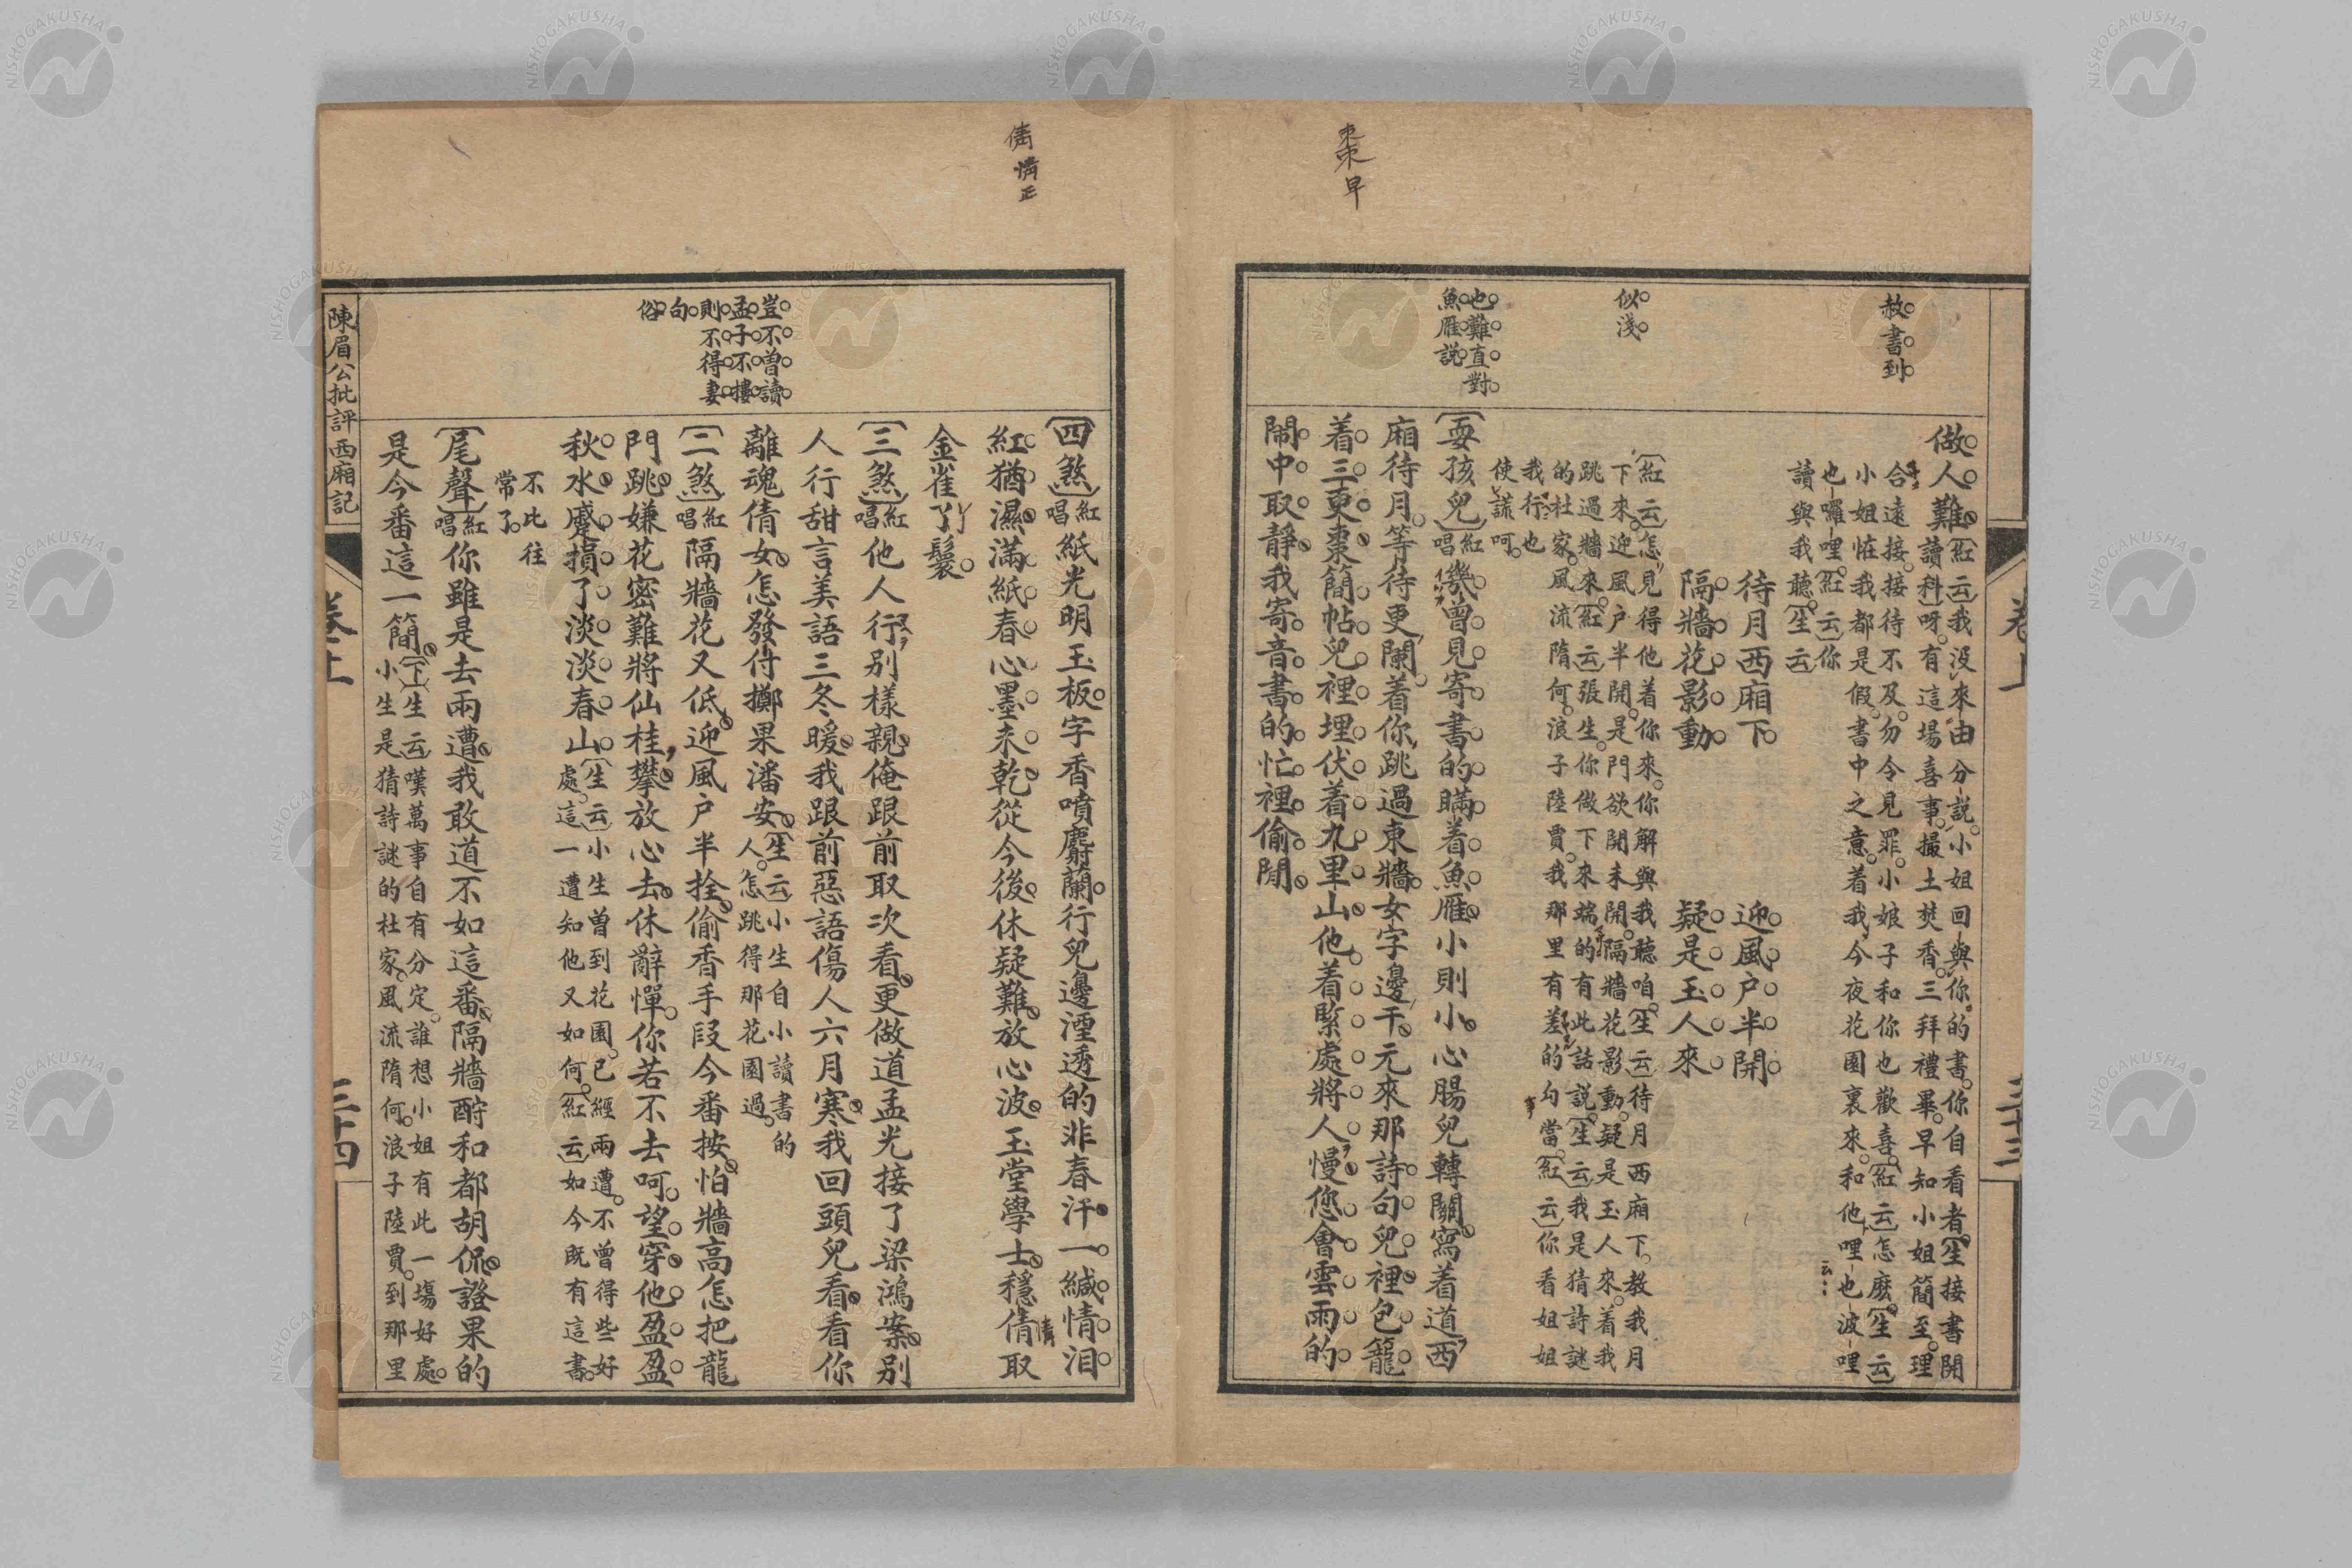 棗 早
赦書到
似淺
也難直對
魚雁說
做人難〔紅云〕我没來由分說小姐回與你的書你自看者〔生接書開
讀科〕呀有這場喜事撮土焚香三拜禮畢早知小姐簡至理
合遠接接待不及勿令見罪小娘子和你也歡喜〔紅云〕怎麽〔生云〕
小姐恠我都是假書中之意着我今夜花園裏來和他哩也波哩
也囉哩〔紅云〕你
讀與我聽〔生云〕
待月西廂下 迎風户半開
隔牆花影動 疑是玉人來
〔紅云〕怎見得他着你來你解與我聽咱〔生云〕待月西廂下教我月
下來迎風户半開是門欲開未開隔牆花影動疑是玉人來着我
跳過牆來〔紅云〕張生你做下來端的有此話説〔生云〕我是猜詩謎
的杜家風流隋何浪子陸賈我那里有差的勾當〔紅云〕你看姐姐
我行也
使謊呵
〔耍孩兒〕紅唱幾曾見寄書的瞞着魚雁小則小心腸兒轉關寫着道西
廂待月等待更闌着你跳過東牆女字邊干元來那詩句兒裡包籠
着三更棗簡帖兒裡埋伏着九里山他着緊處將人慢您會雲雨的
鬧中取靜我寄音書的忙裡偷閒
卷上
三十三
倩 情正
豈不曾讀
孟子不摟
則不得妻
句
俗
〔四煞〕紅唱紙光明玉板字香噴麝蘭行兒邊湮透的非春汗一緘情泪
紅猶濕滿紙春心墨未乾從今後休疑難放心波玉堂學士穩倩取
金雀丫鬟
〔三煞〕紅唱他人行别樣親俺跟前取次看更做道孟光接了梁鴻案别
人行甜言美語三冬暖我跟前惡語傷人六月寒我回頭兒看看你
離魂倩女怎發付擲果潘安〔生云〕小生自小讀書的
人怎跳得那花園過
〔二煞〕紅唱隔牆花又低迎風户半拴偷香手段今番按怕牆高怎把龍
門跳嫌花密難將仙桂攀放心去休辭憚你若不去呵望穿他盈盈
秋水蹙損了淡淡春山〔生云〕小生曾到花園已經兩遭不曾得些好
處這一遭知他又如何〔紅云〕如今既有這書
不比往
常了
〔尾聲〕紅唱你雖是去兩遭我敢道不如這番隔牆酧和都胡侃證果的
是今番這一簡〔下〕生云嘆萬事自有分定誰想小姐有此一塲好處
小生是猜詩謎的杜家風流隋何浪子陸賈到那里
陳眉公批評西廂記
卷上
三十四